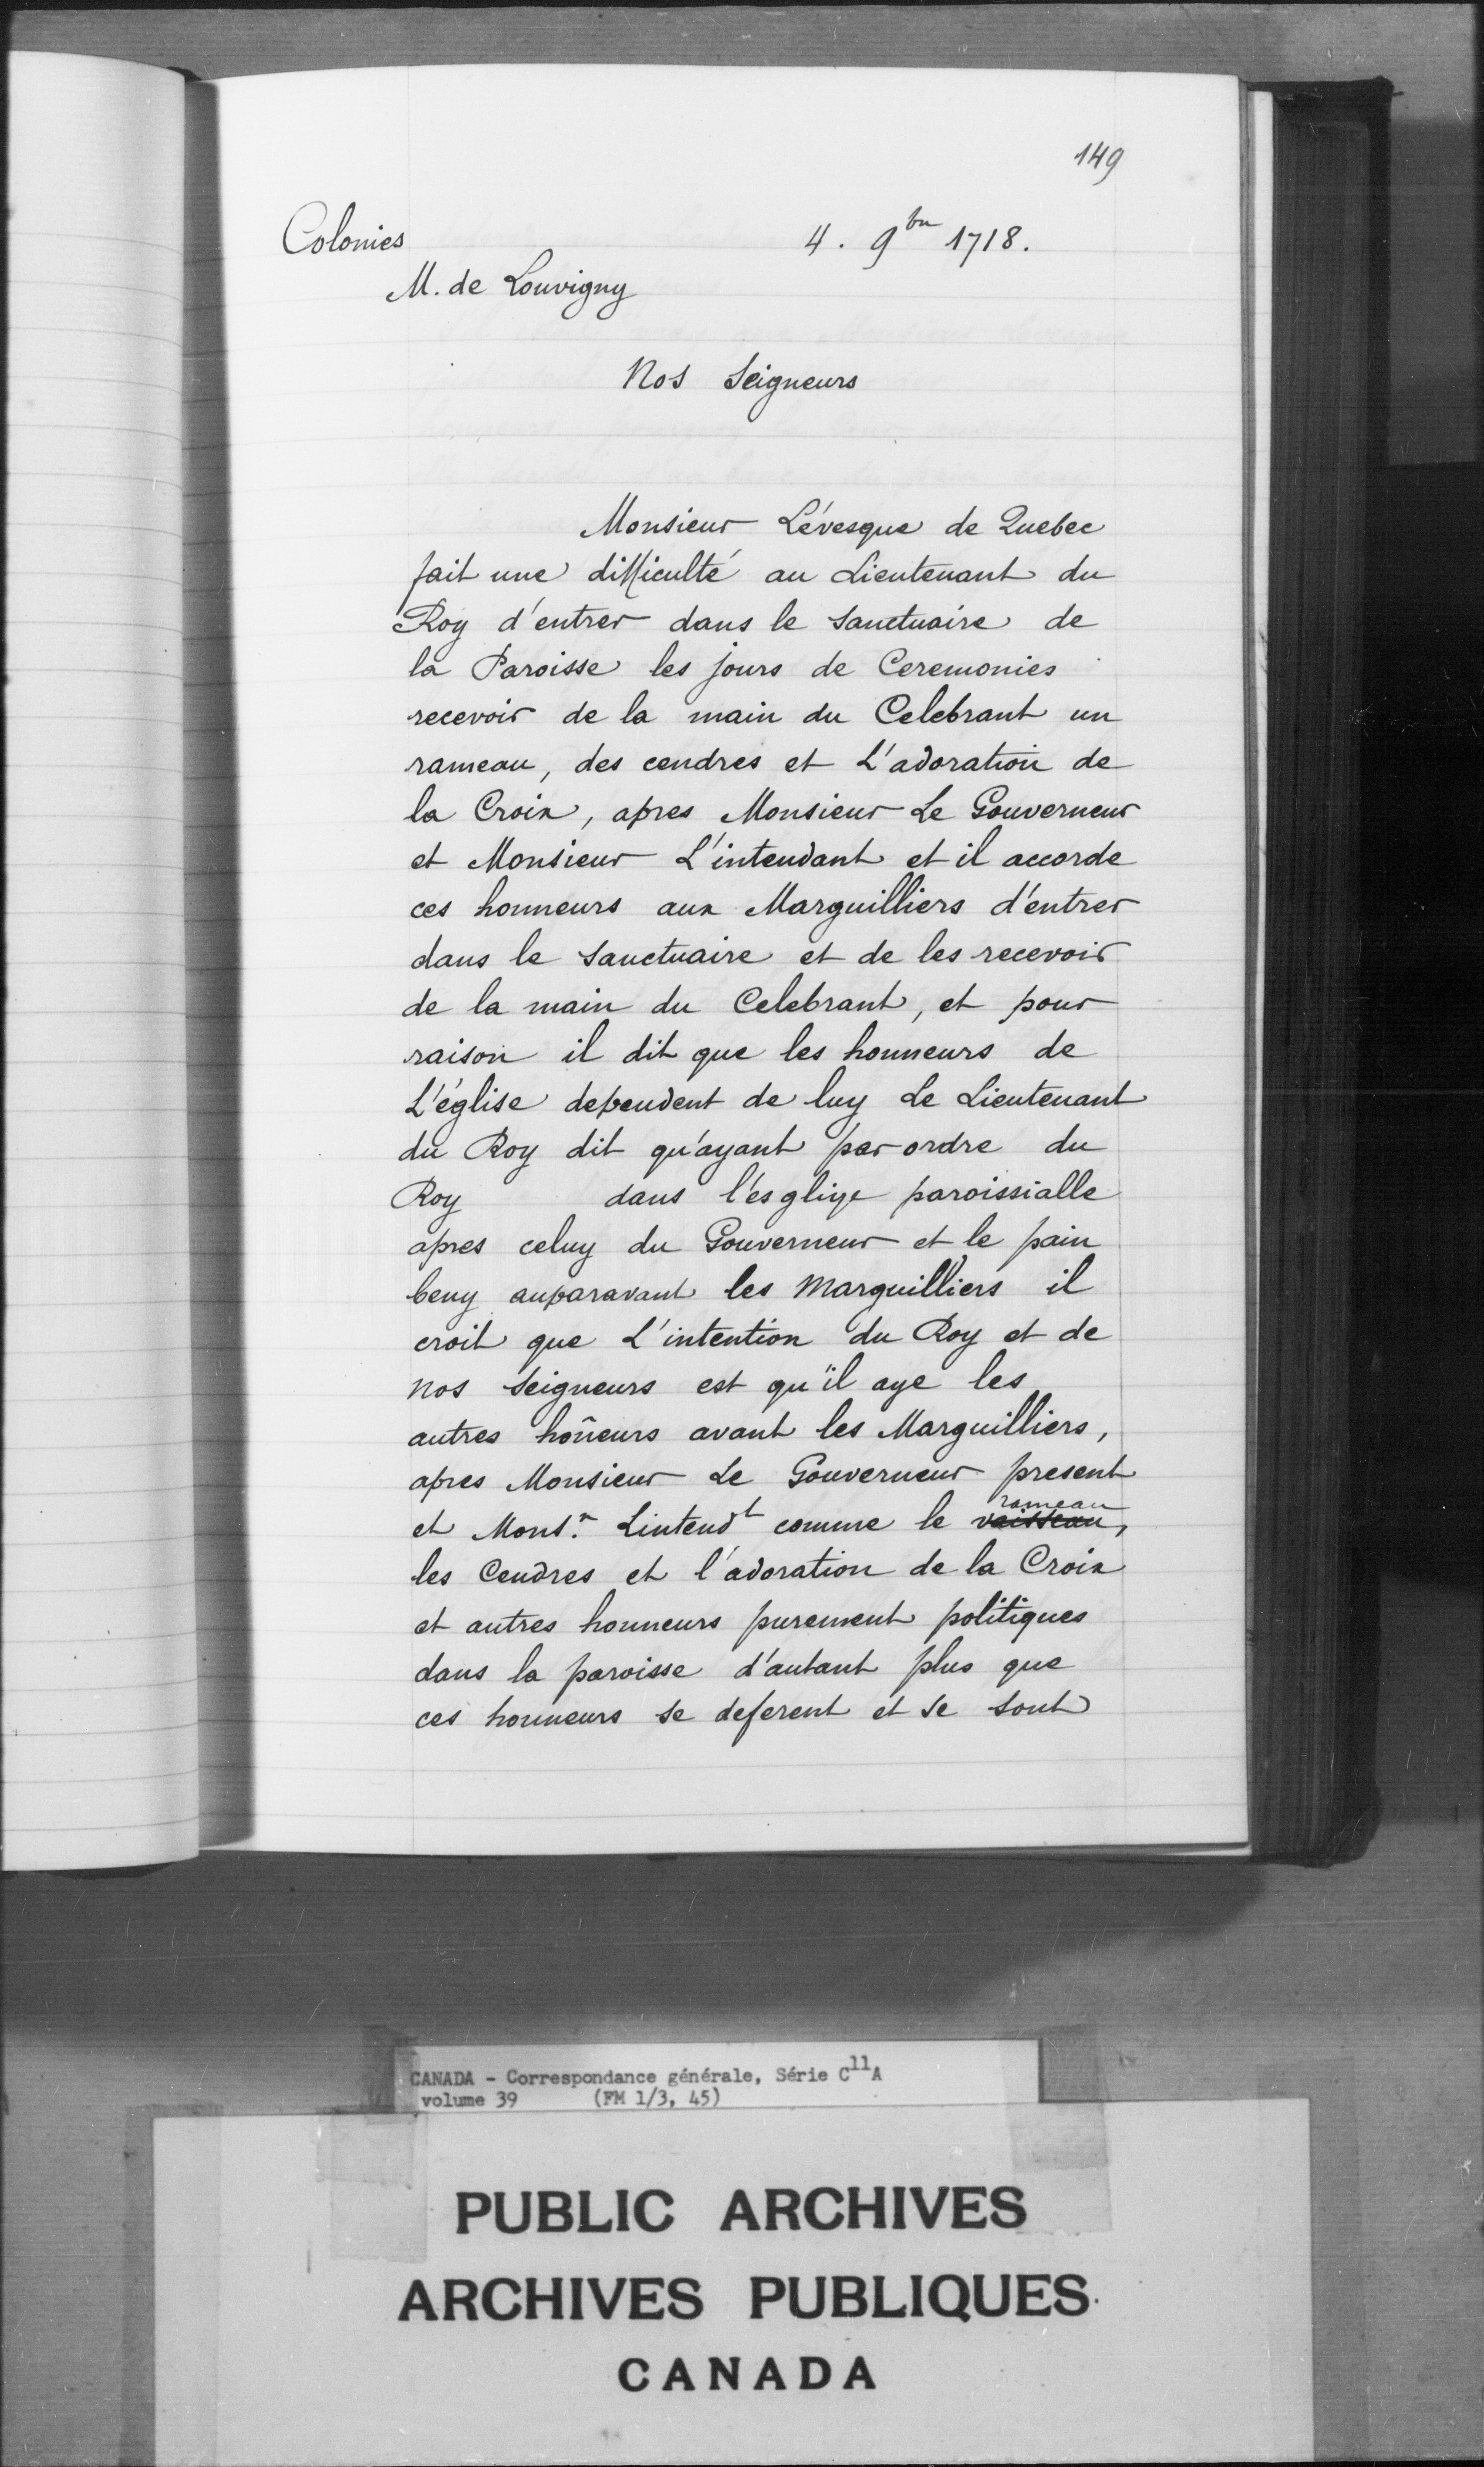 149
Colonies 4. 9bre 1718.
M. de Louvigny
Nos Seigneurs
Monsieur Lévesque de Quebec
fait une difficulté au Lieutenant du
Roy d'entrer dans le Sanctuaire de
la Paroisse les jours de Ceremonies
recevoir de la main du Celebrant un
rameau, des cendres et L'adoration de
la Croix, apres Monsieur Le Gouverneur
et Monsieur L'intendant et il accorde
ces honneurs aux Marguilliers d'entrer
dans le Sanctuaire et de les recevoir
de la main du Celebrant, et pour
raison il dit que les honneurs de
L'église dependent de luy Le Lieutenant
du Roy dit qu'ayant par ordre du
Roy dans l'esglize paroissialle
apres celuy du Gouverneur et le pain
beny auparavant les Marguilliers il
croit que L'intention du Roy et de
nos Seigneurs est qu'il aye les
autres hoñeurs avant les Marguilliers,
apres Monsieur Le Gouverneur present
et Monsr. Lintendt comme le vaisseau rameau,
les Cendres et l'adoration de la Croix
et autres honneurs purement politiques
dans la paroisse d'autant plus que
ces honneurs se deferent et se sont
CANADA - Correspondance générale, Série C11A
volume 39 (FM 1/3, 45)
PUBLIC ARCHIVES
ARCHIVES PUBLIQUES
CANADA